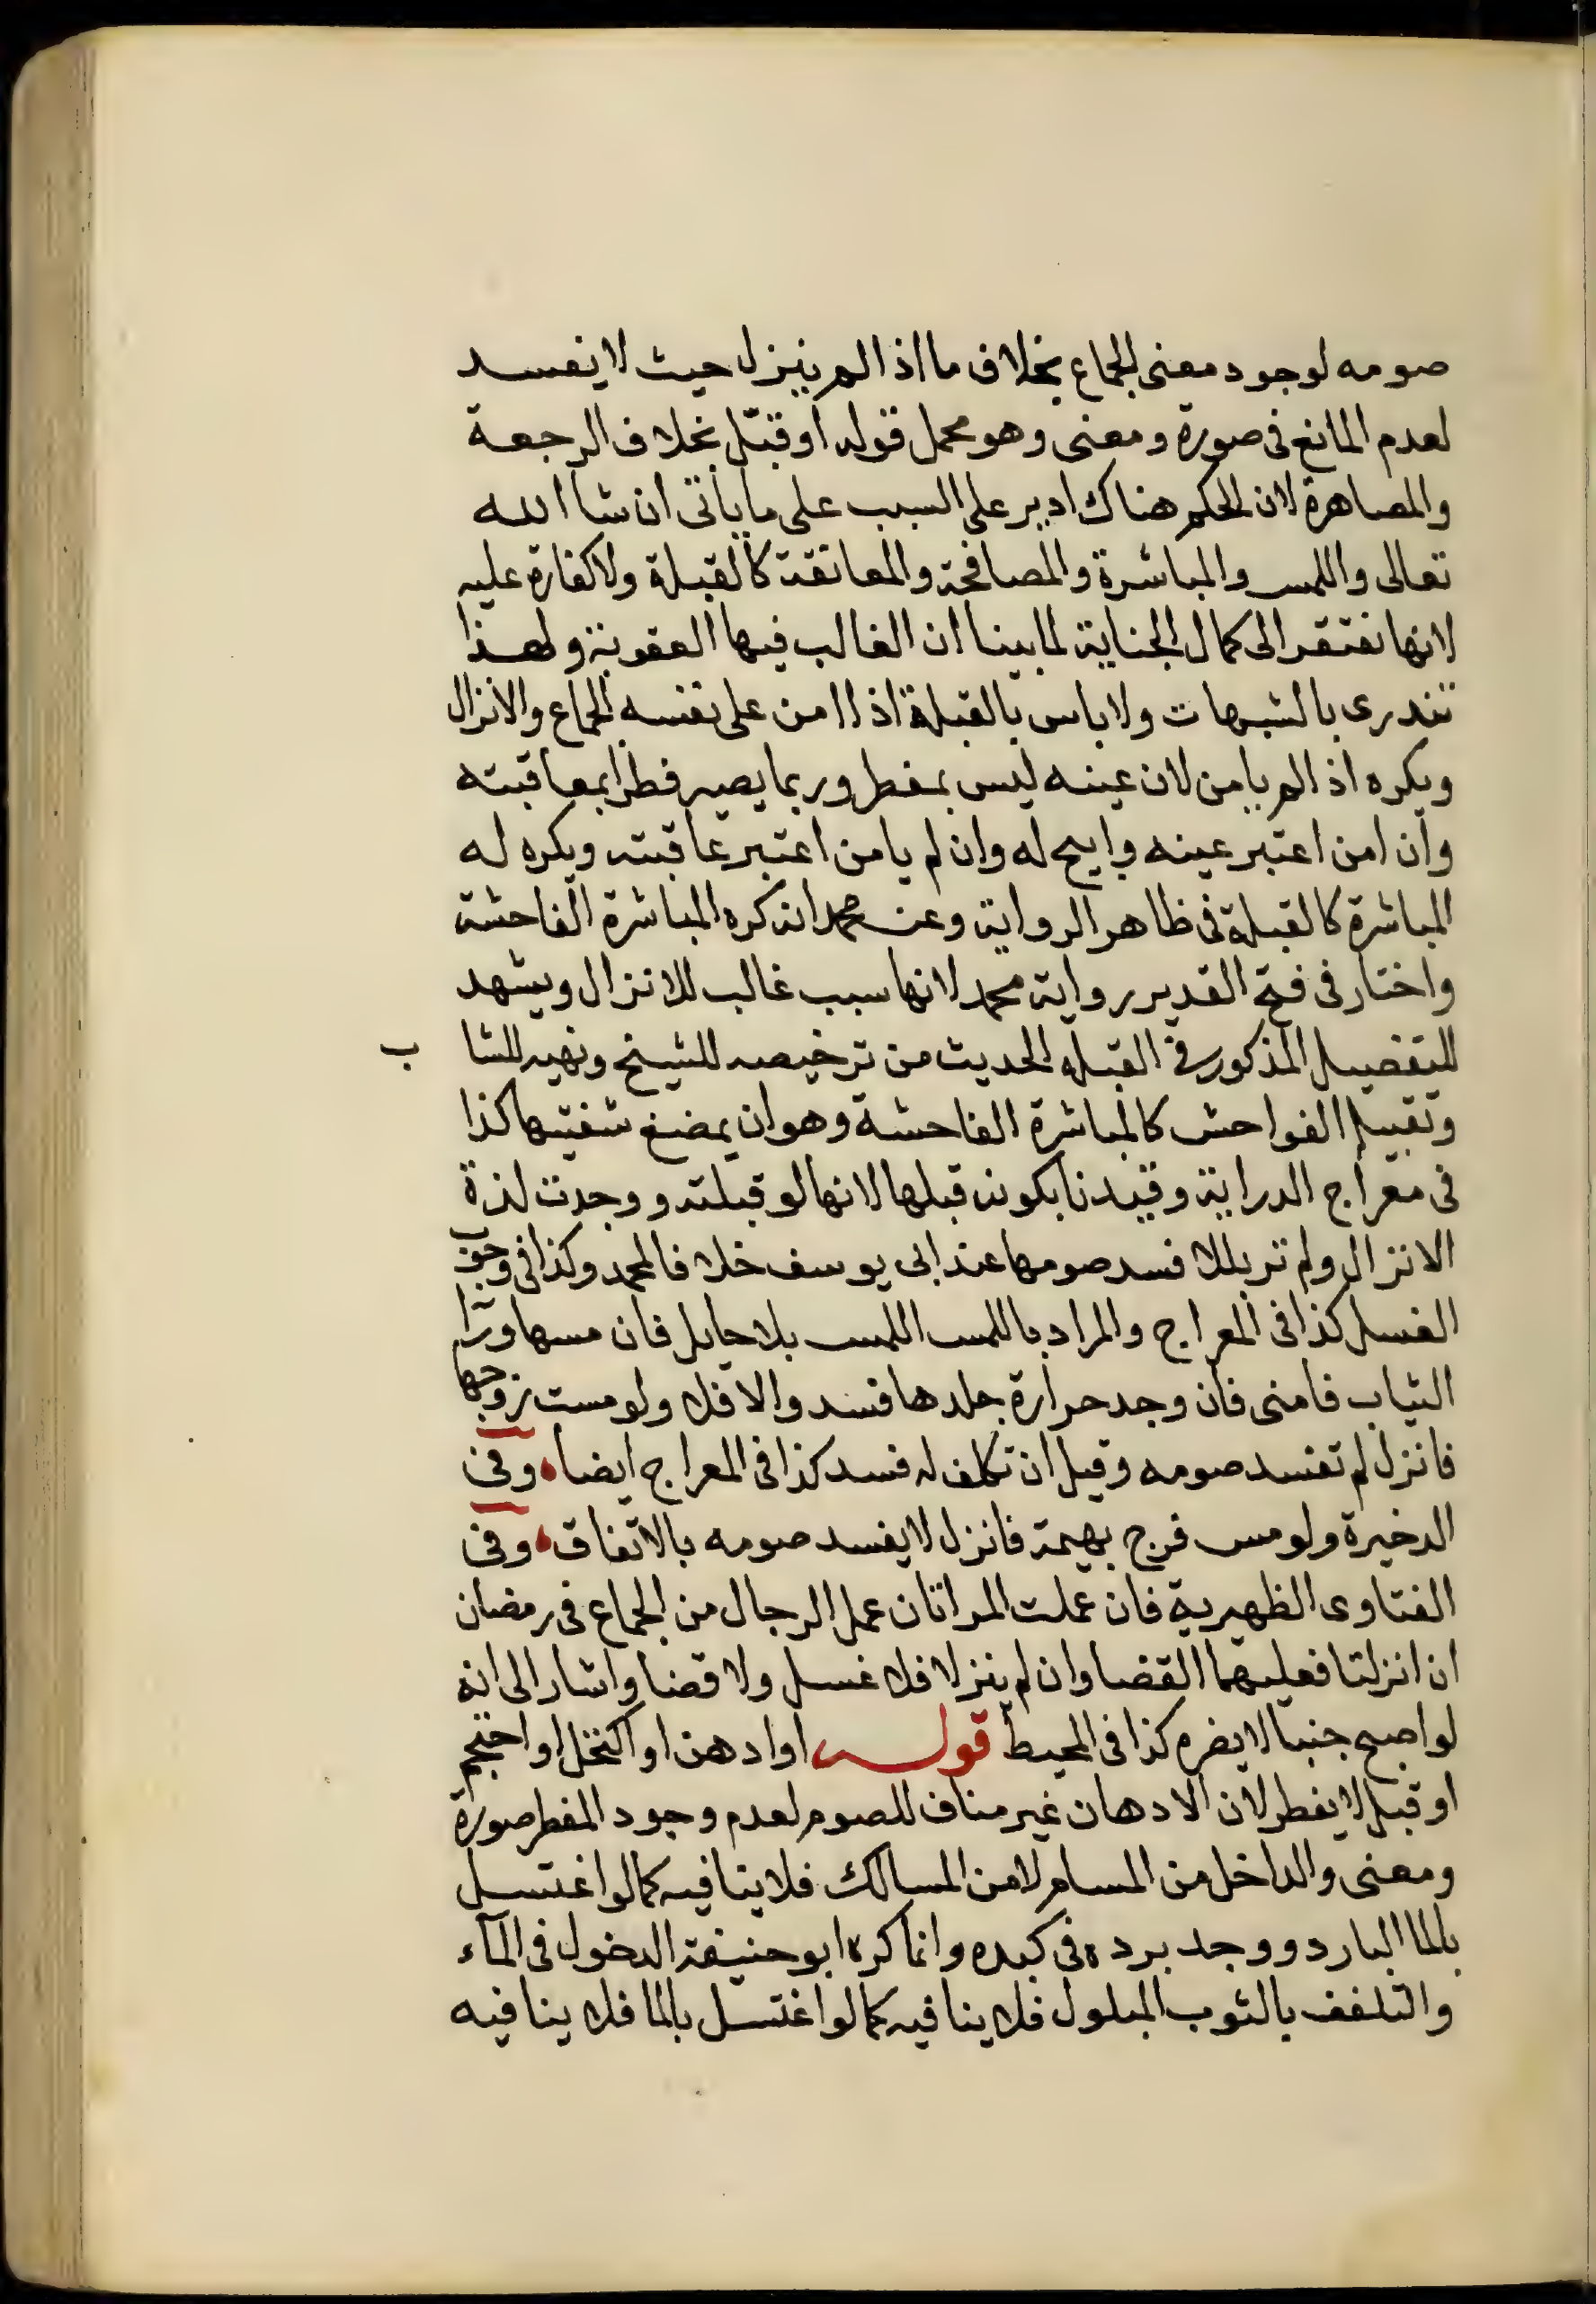 صومه لوجود معنى الجماع بخلاف ما اذا لم ينزل حيث لا يفسد
لعدم المانع فى صورة ومعنى وهو محمل قوله او قبّل بخلاف الرجعة
والمصاهرة لان الحكم هناك ادير على السبب على ما ياتى ان شا الله
تعالى واللمس والمباشرة والمصافحة والمعانقة كالقبلة ولا كفارة عليه
لانها تفتقر الى كمال الجناية لما بينا ان الغالب فيها العقوبة ولهذا
تندرى بالشبهات ولا باس بالقبلة اذا امن على نفسه الجماع والانزال
ويكره اذا لم يامن لان عينه ليس بمفطر وربما يصير فطرا بمعاقبته
وان امن اعتبر عينه وابيح له وان لم يامن اعتبر عاقبته ويكره له
المباشرة كالقبلة فى ظاهر الرواية وعن محمد انه كره المباشرة الفاحشة
واختار فى فتح القدير رواية محمد لانها سبب غالب للانزال ويشهد
للتفصيل المذكور فى القبلة الحديث من ترخيصه للشيخ ونهيه للشا ب
وتقبيل الفواحش كالمباشرة الفاحشة وهو ان يمضغ شفتيها كذا
فى معراج الدراية وقيدنا بكونه قبلها لانها لو قبلته ووجدت لذة
الانزال ولم تر بللا فسد صومها عند ابى يوسف خلافا لمحمد وكذا فى وجوب
الغسل كذا فى المعراج والمراد باللمس اللمس بلا حايل فان مسها وراء
الثياب فامنى فان وجد حرارة جلدها فسد والا فلا ولو مست زوجها
فانزل لم تفسد صومه وقيل ان تكلف له فسد كذا فى المعراج ايضا ه وفى
الدخيرة ولو مس فرج بهيمة فانزل لا يفسد صومه بالاتفاق ه وفى
الفتاوى الظهيرية فان عملت المراتان عمل الرجال من الجماع فى رمضان
ان انزلتا فعليهما القضا وان لم ينزلا فلا غسل ولا قضا واشار الى انه
لو اصبح جنبا لا يضره كذا فى المحيط قوله او ادهن او اكتحل او احتجم
او قبل لا يفطر لان الادهان غير مناف للصوم لعدم وجود المفطر صورة
ومعنى والداخل من المسام لا من المسالك فلا ينافيه كما لو اغتسل
بالما البارد ووجد برده فى كبده وانما كره ابو حنيفة الدخول فى المآء
والتلفف بالثوب المبلول فلا ينافيه كما لو اغتسل بالما فلا ينافيه